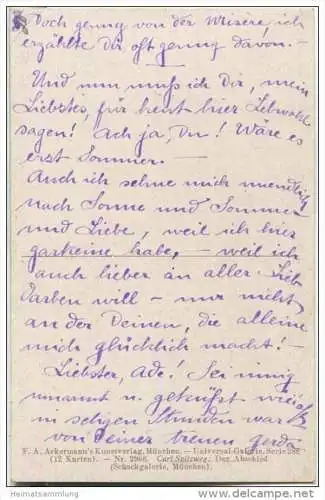 Doch genug von der Misere, ich
erzählte Dir oft genug davon. –
Und nun muß ich Dir, mein
Liebster, für heut hier Lebwohl
sagen! Ach ja, Du! Wäre es
erst Sommer. –
Auch ich sehne mich unendlich
nach Sonne und Sommer
und Liebe, weil ich hier
garkeine habe, – weil ich
auch lieber an aller Lieb
darben will – nur nicht
an der Deinen, die alleine
mich glücklich macht! –
Liebster, Ade! Sei innig
umarmt u. geküßt wie's
in seligen Stunden war
von Deiner treuen Gerda
F. A. Ackermann's Kunstverlag, München. — Universal-Galerie, Serie 288
(12 Karten). — Nr. 2966. Carl Spitzweg, Der Abschied
(Schackgalerie, München).
www.heimatsammlung.de